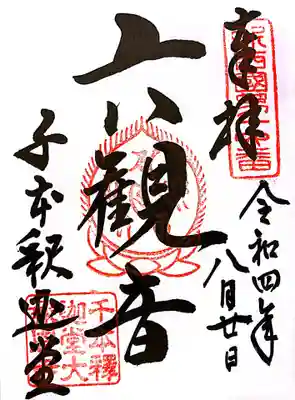 奉拝
令和四年
八月廿日
六観音
千本釈迦堂
千本釋
迦堂大
報恩寺